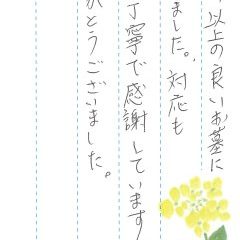 以上の良いお墓に
ました。対応も
丁寧で感謝しています
がとうございました。